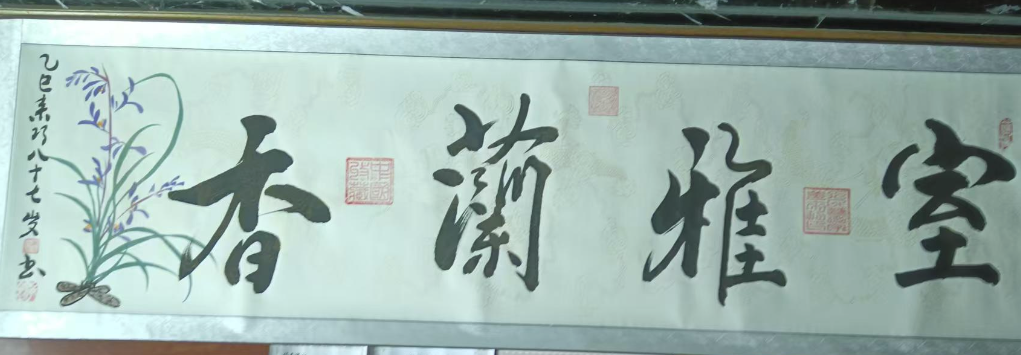 室雅蘭香
乙巳 八十七岁
书